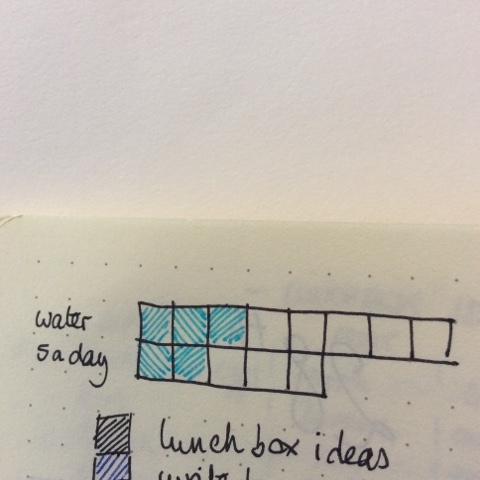 water
5 a day
lunch box ideas